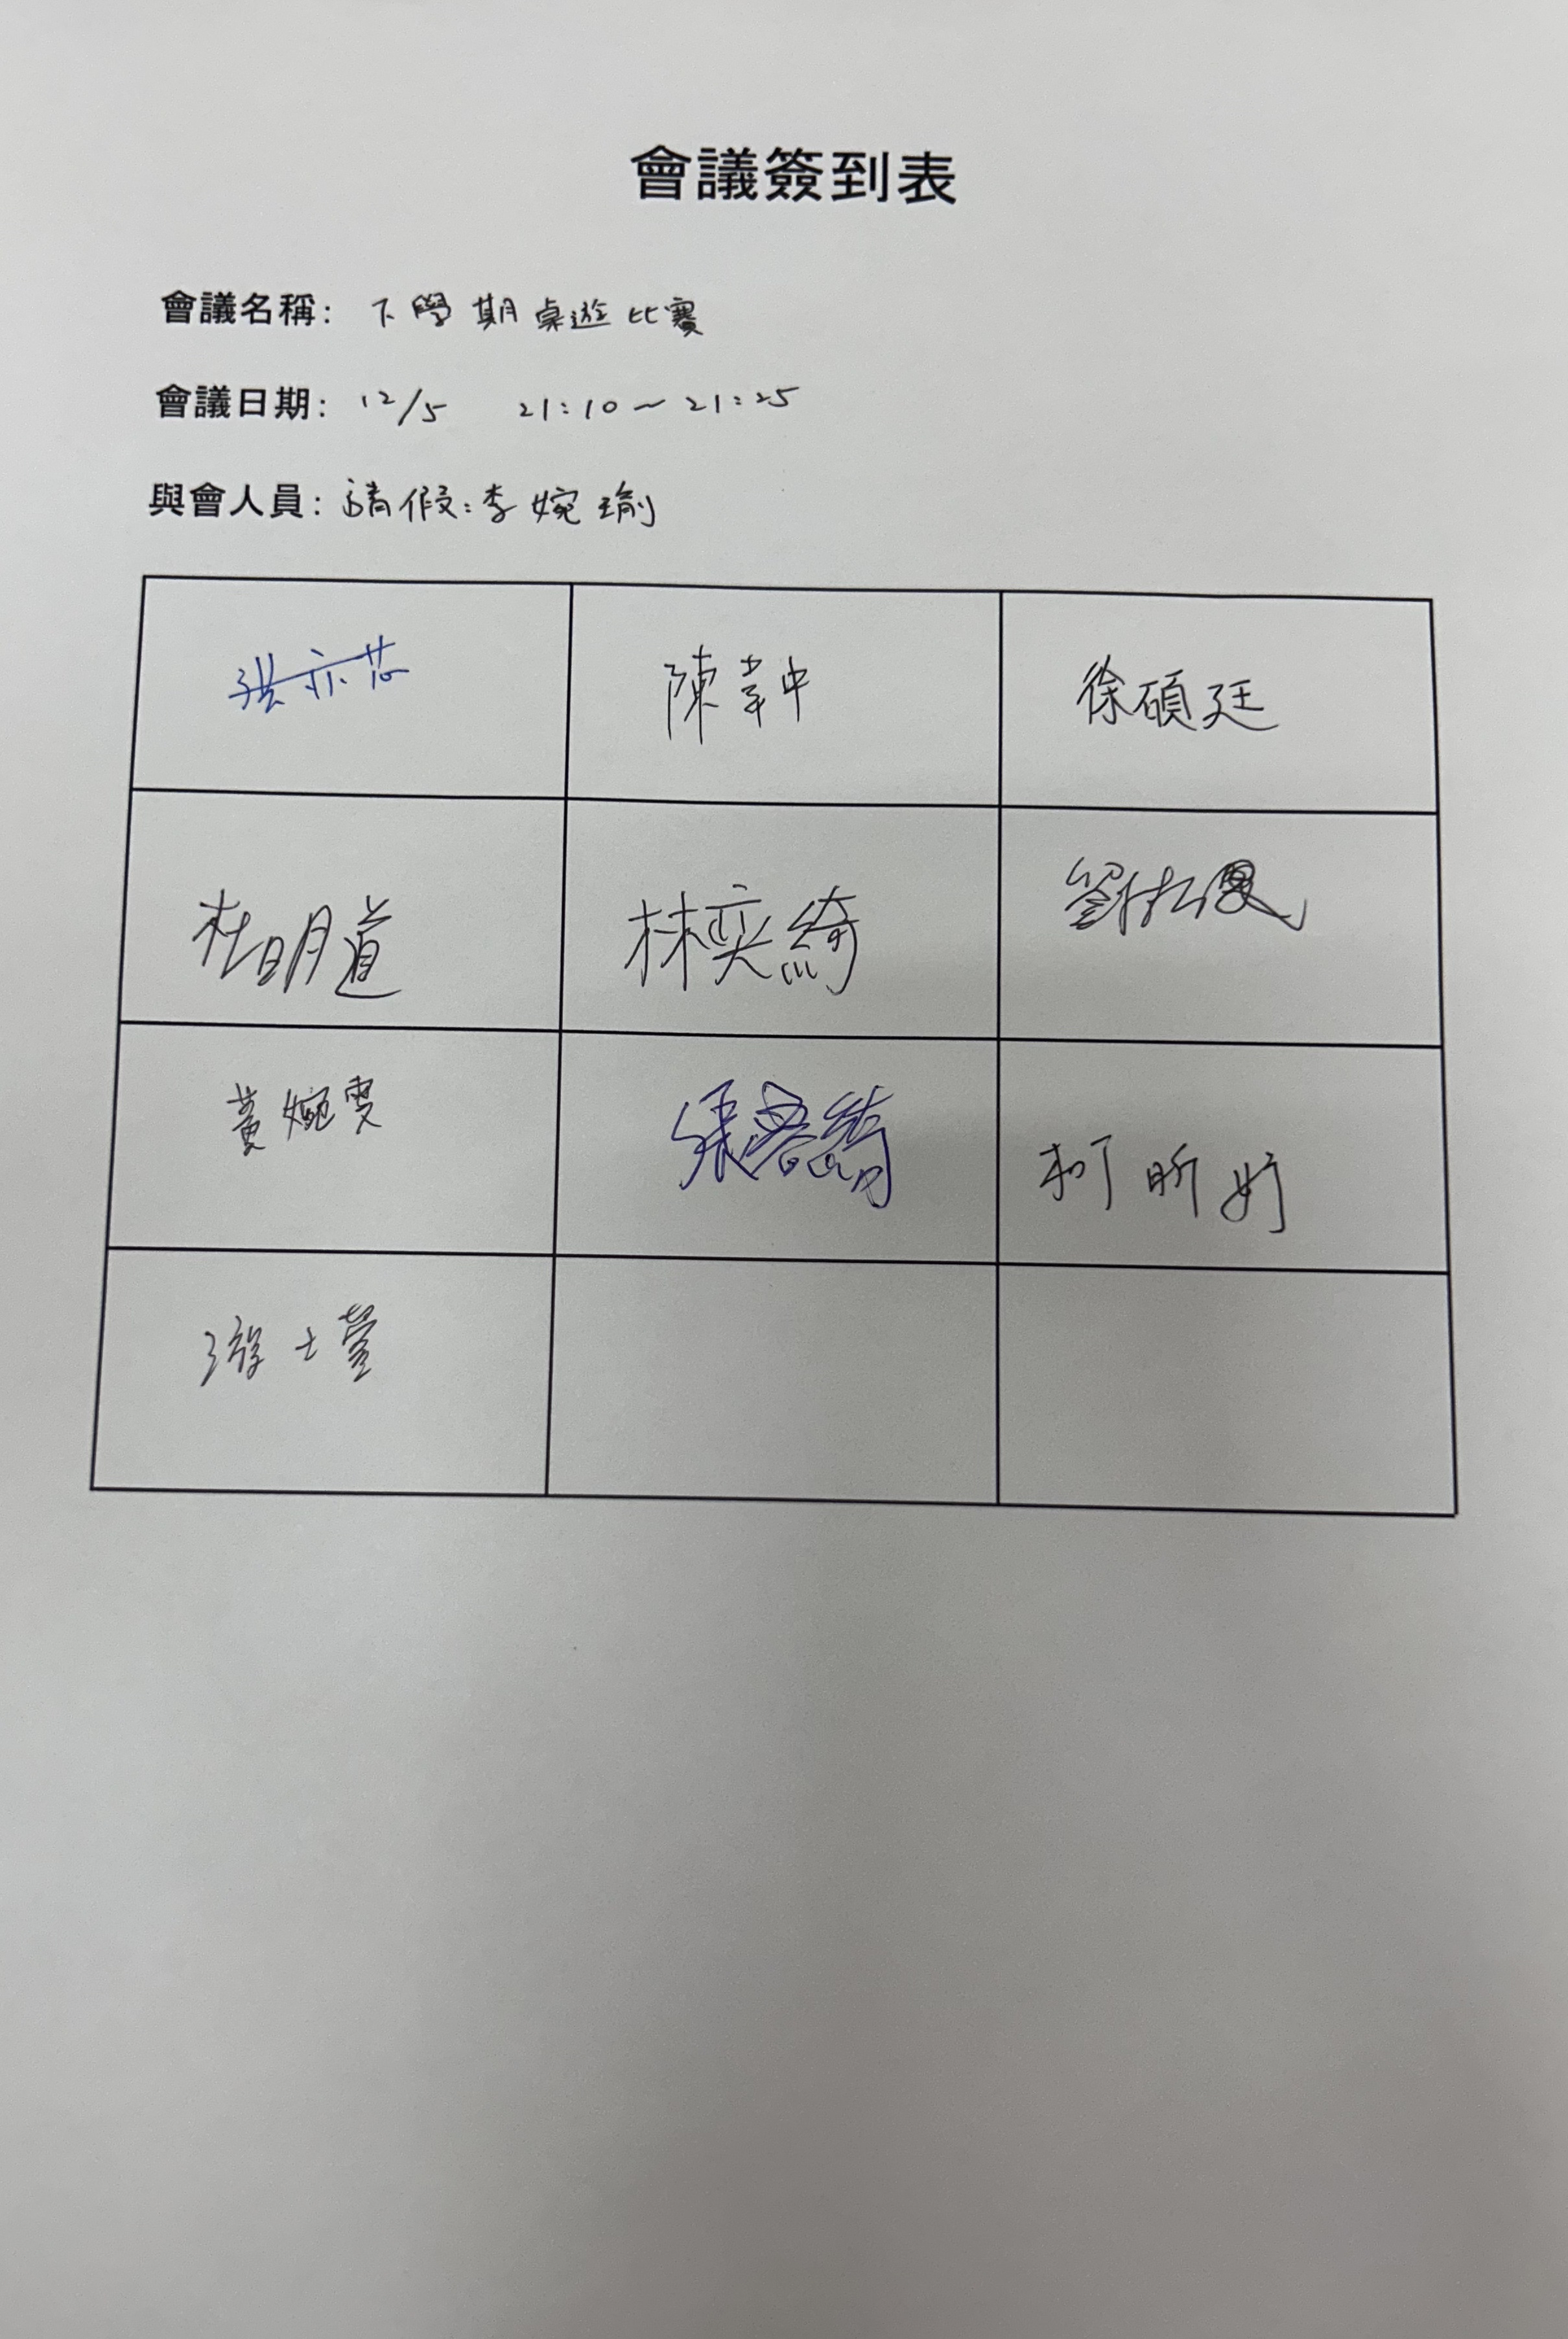 會議簽到表
會議名稱: 下學期桌遊比賽
會議日期: 12/5 21:10~21:25
與會人員: 請假:李婉瑜
洪亦芯 陳韋中 徐碩廷
杜明道 林奕綺 劉
黃婉雯 張 柯昕妤
游士萱